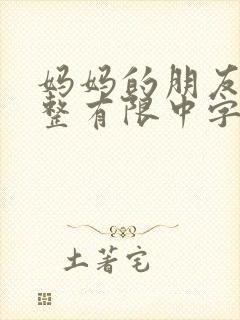 妈妈的朋友
整有限中字
土著宅